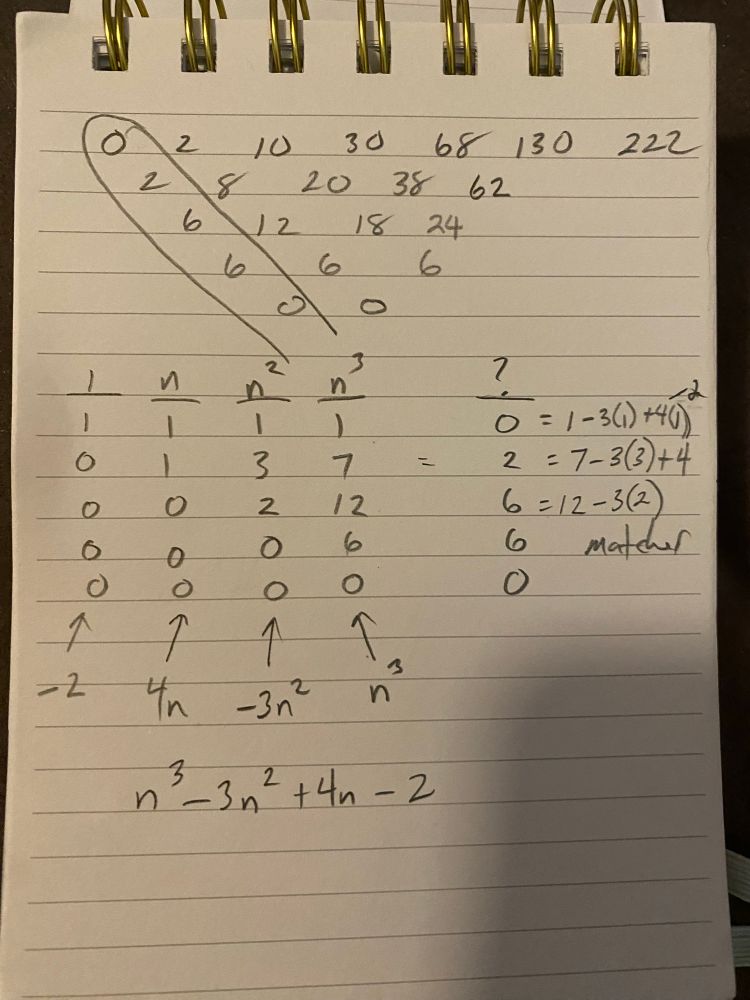 0 2 10 30 68 130 222
2 8 20 38 62
6 12 18 24
6 6 6
0 0
1 n n² n³ ?
1 1 1 1 0 = 1-3(1)+4(1)-2
0 1 3 7 = 2 = 7-3(3)+4
0 0 2 12 6 = 12-3(2)
0 0 0 6 6 matches
0 0 0 0 0
↑ ↑ ↑ ↑
-2 4n -3n² n³
n³-3n²+4n-2